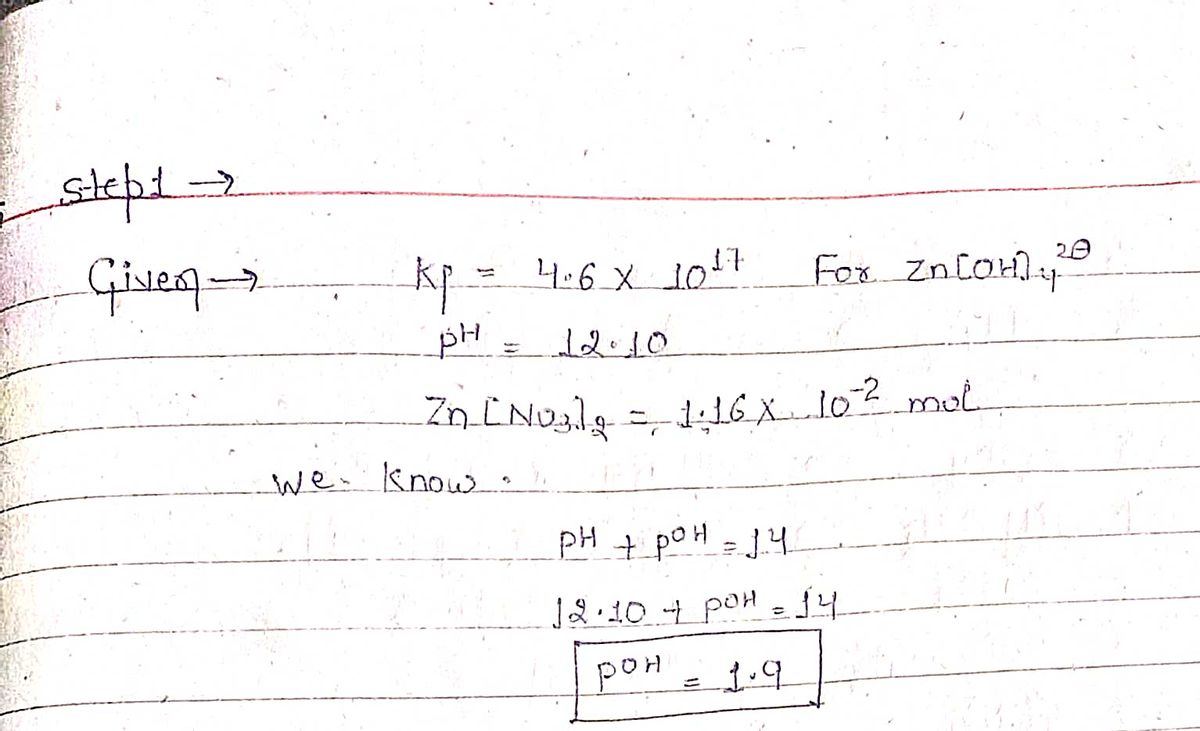 Step1 →
Given → Kp = 4.6 X 10¹⁷ For Zn[OH]₄²⊖
pH = 12.10
Zn[NO₃]₂ = 1.16 X 10⁻² mol
We Know.
pH + pOH = 14
12.10 + pOH = 14
pOH = 1.9